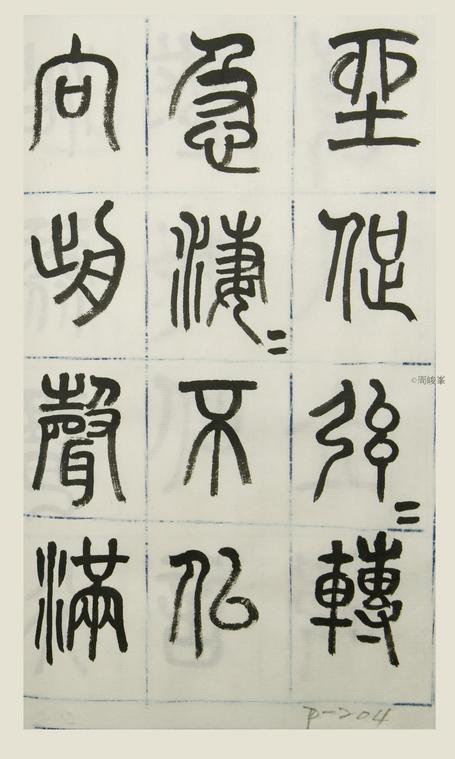 坐促弦=轉
急淒=不似
向前聲滿
©周峻峯
P-204